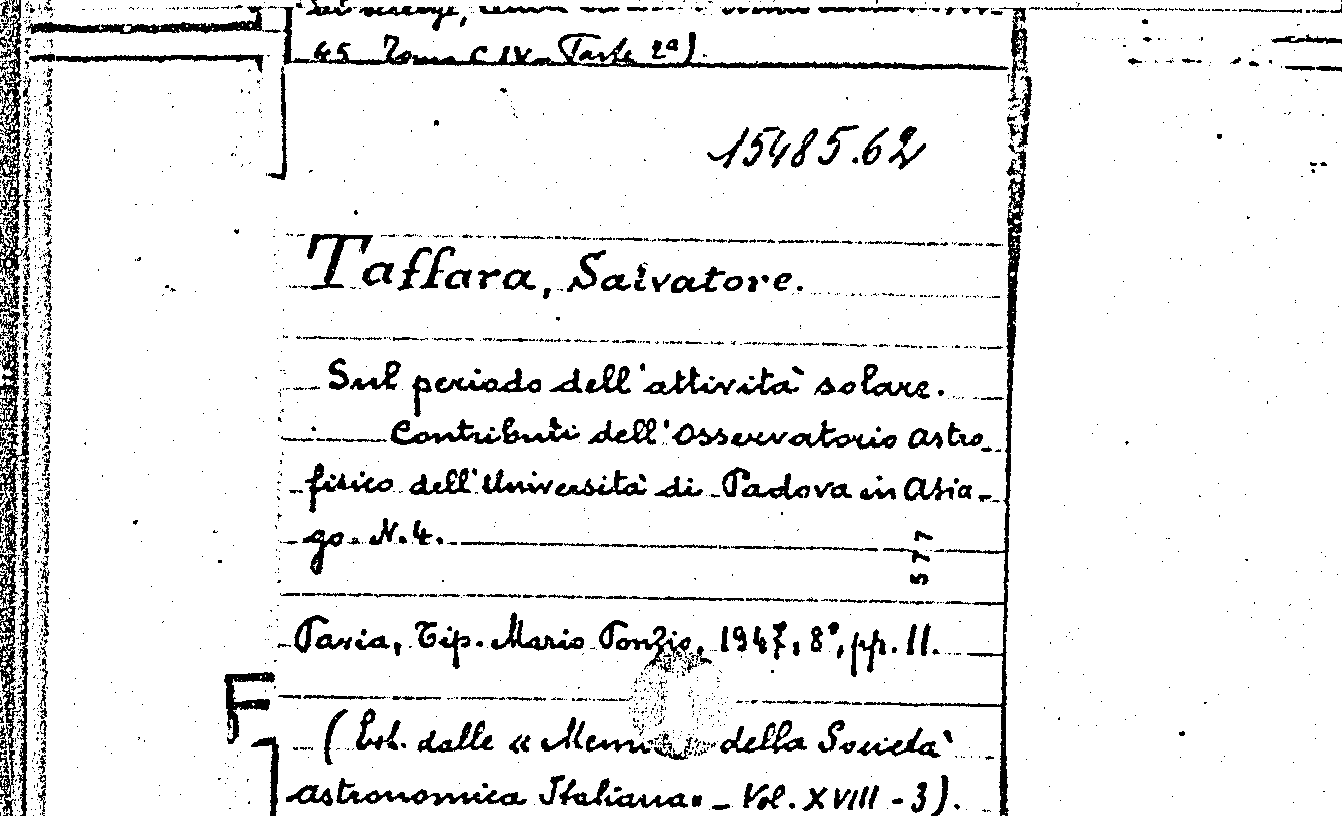 45 Tomo CIV - Parte 2ª).
15485.62
Taffara, Salvatore.
Sul periodo dell'attività solare.
Contributi dell'Osservatorio Astro-
fisico dell'Università di Padova in Asia-
go. N. 4.
577
Pavia, Tip. Mario Ponzio, 1947, 8°, pp. 11.
(Est. dalle « della Società
astronomica Italiana» - Vol. XVIII - 3).